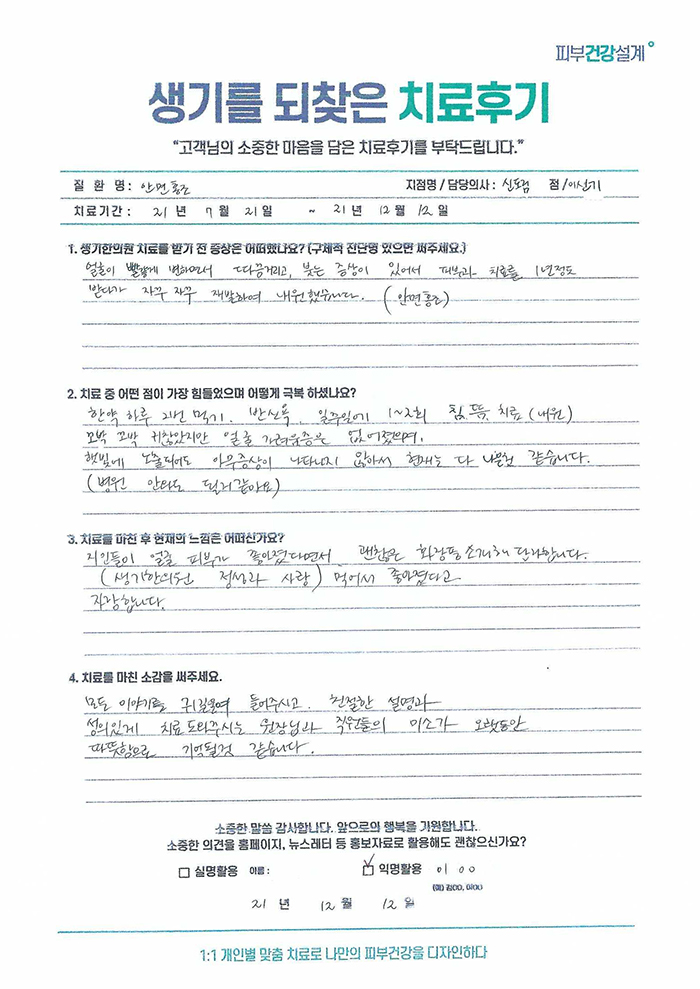 피부건강설계
생기를 되찾은 치료후기
"고객님의 소중한 마음을 담은 치료후기를 부탁드립니다."
질 환 명 : 안면홍조 지점명 / 담당의사 : 신도림 점 /이신기
치료기간 : 21 년 7 월 21 일 ~ 21 년 12 월 12 일
1. 생기한의원 치료를 받기 전 증상은 어떠했나요? (구체적 진단명 있으면 써주세요.)
얼굴이 빨갛게 변하면서 따끔거리고, 붓는 증상이 있어서 피부과 치료를 1년정도
받다가 자꾸 자꾸 재발하여 내원했습니다. (안면홍조)
2. 치료 중 어떤 점이 가장 힘들었으며 어떻게 극복 하셨나요?
한약 하루 2번 먹기. 반신욕. 일주일에 1~2회 침, 뜸, 치료 (내원)
꼬박 꼬박 귀찮았지만 얼굴 가려움증은 없어졌으며,
햇빛에 노출되어도 아무증상이 나타나지 않아서 현재는 다 나은것 같습니다.
(병원 안와도 될거 같아요)
3. 치료를 마친 후 현재의 느낌은 어떠신가요?
지인들이 얼굴 피부가 좋아졌다면서 괜찮은 화장품 소개해 달라합니다.
(생기한의원 정성과 사랑) 먹어서 좋아졌다고
자랑합니다.
4. 치료를 마친 소감을 써주세요.
모든 이야기를 귀기울여 들어주시고. 친절한 설명과
성의있게 치료 도와주시는 원장님과 직원들의 미소가 오랫동안
따뜻함으로 기억될것 같습니다.
소중한 말씀 감사합니다. 앞으로의 행복을 기원합니다.
소중한 의견을 홈페이지, 뉴스레터 등 홍보자료로 활용해도 괜찮으신가요?
실명활용 이름 : 익명활용 이 ㅇㅇ
(예) 김OO, 이OO
21 년 12 월 12 일
1:1 개인별 맞춤 치료로 나만의 피부건강을 디자인하다